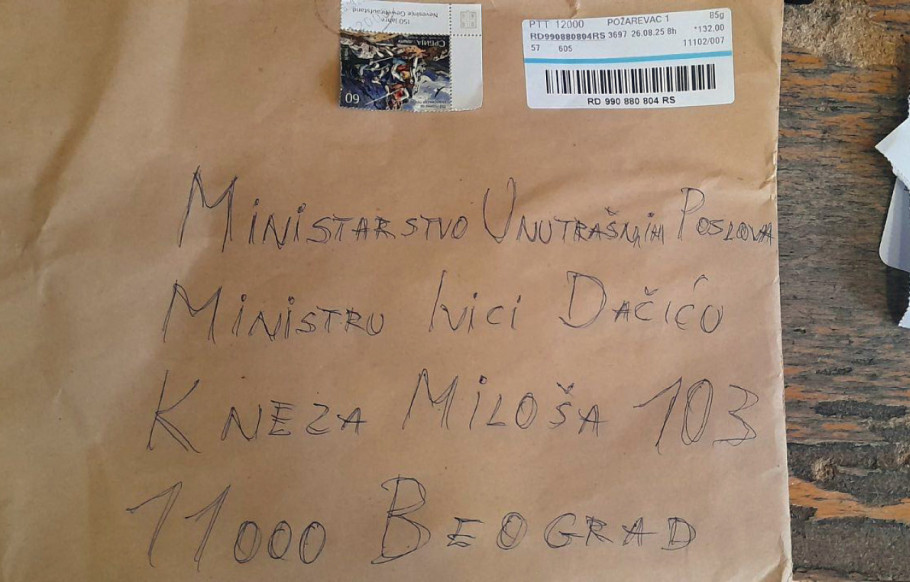 СРБИЈА
60
PTT 12000 POŽAREVAC 1 85g
RD990880804RS 3697 26.08.25 8h *132,00
57 605 11102/007
RD 990 880 804 RS
MINISTARSTVO UNUTRAŠNJIH POSLOVA
MINISTRU IVICI DAČIĆU
KNEZA MILOŠA 103
11000 BEOGRAD